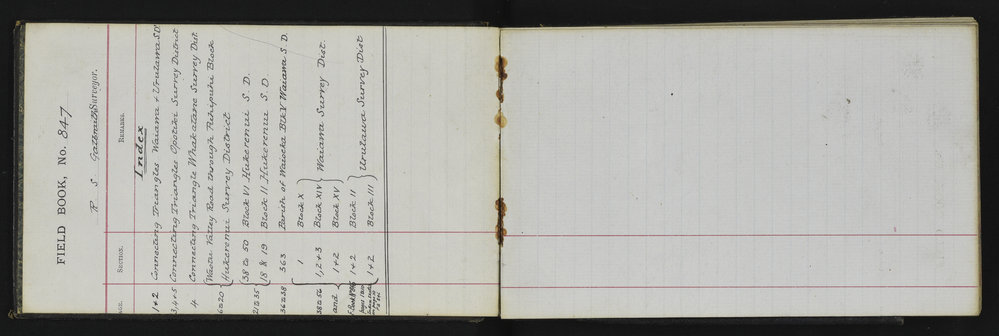 FIELD BOOK, No. 847
R S Galbraith Surveyor.
PAGE. SECTION. REMARKS.
Index
1+2 Connecting Triangles Waiawa + Urutawa S.D.
3,4+5 Connecting Triangles Opotiki Survey District
4 Connecting Triangle Whakatane Survey Dist.
6 to 20 { Waotu Valley Road through Pahipuhi Block
Hukerenui Survey District
21 to 35 { 38 to 50 Block VI Hukerenui S. D.
18 & 19 Block II Hukerenui S. D.
36 to 38 363 Parish of Waioeka Blk V Waiawa S. D.
38 to 56 { 1 Block X
1, 2+3 Block XIV } Waiawa Survey Dist.
and { 1+2 Block XV
1+2 Block II
1+2 Block III } Urutawa Survey Dist